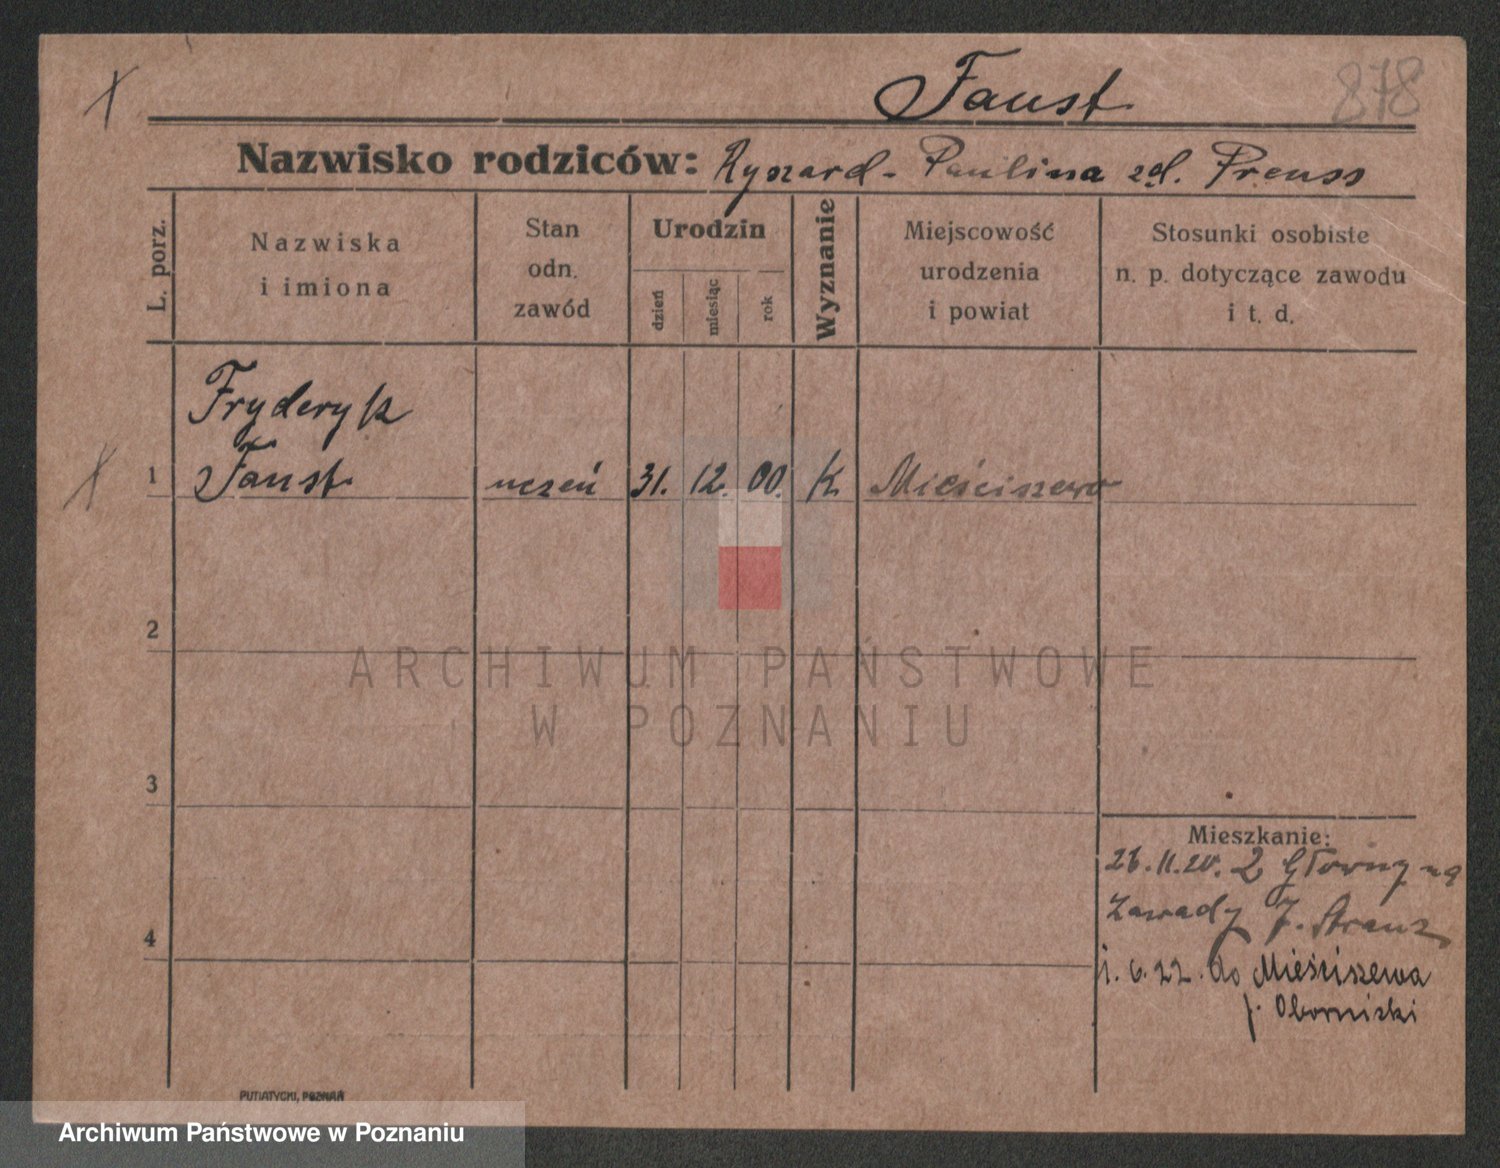 Faust 878
Nazwisko rodziców: Ryszard - Paulina zd. Preuss
L. porz.
Nazwiska
i imiona
Stan
odn.
zawód
Urodzin
dzień
miesiąc
rok
Wyznanie
Miejscowość
urodzenia
i powiat
Stosunki osobiste
n. p. dotyczące zawodu
i t. d.
Fryderyk
1 Faust uczeń 31. 12. 00. K Mieściszewo
2
3
4
Mieszkanie:
26.11.20. 2 Główny na
Zawady J.
1. 6. 22. do Mieściszewa
p. Obornicki
PUTIATYCKI, POZNAŃ
ARCHIWUM PAŃSTWOWE
W POZNANIU
Archiwum Państwowe w Poznaniu